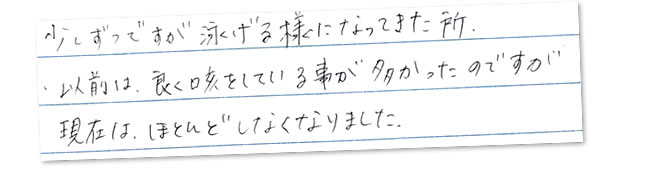 少しずつですが泳げる様になってきた所.
・以前は、良く咳をしている事が多かったのですが
現在は、ほとんどしなくなりました.